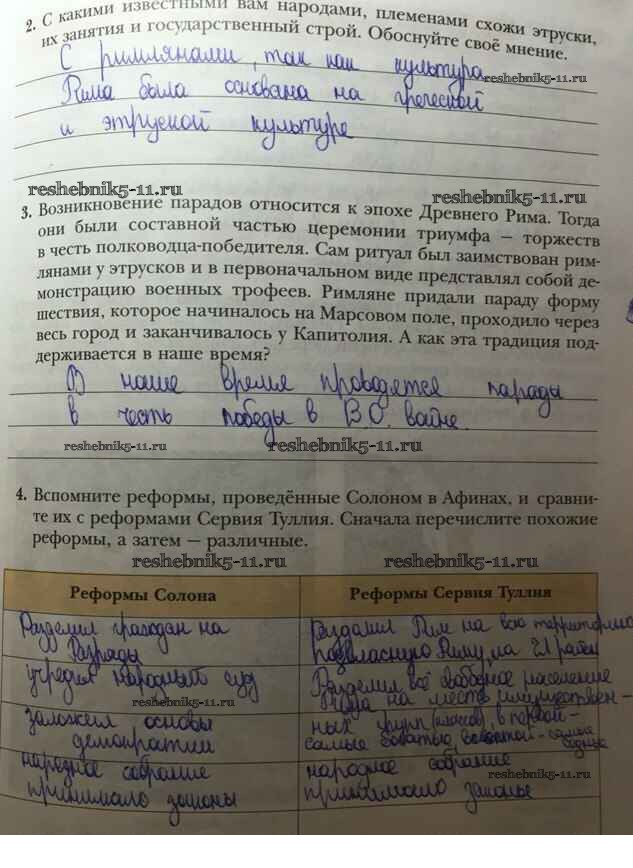 2. С какими известными вам народами, племенами схожи этруски,
их занятия и государственный строй. Обоснуйте своё мнение.
С римлянами, так как культура
reshebnik5-11.ru
Рима была основана на греческой
и этруской культуре
reshebnik5-11.ru
reshebnik5-11.ru
3. Возникновение парадов относится к эпохе Древнего Рима. Тогда
они были составной частью церемонии триумфа — торжеств
в честь полководца-победителя. Сам ритуал был заимствован рим-
лянами у этрусков и в первоначальном виде представлял собой де-
монстрацию военных трофеев. Римляне придали параду форму
шествия, которое начиналось на Марсовом поле, проходило через
весь город и заканчивалось у Капитолия. А как эта традиция под-
держивается в наше время?
В наше время проводятся парады
в честь победы в В.О. войне.
reshebnik5-11.ru
reshebnik5-11.ru
4. Вспомните реформы, проведённые Солоном в Афинах, и сравни-
те их с реформами Сервия Туллия. Сначала перечислите похожие
реформы, а затем — различные.
reshebnik5-11.ru
reshebnik5-11.ru
Реформы Солона
Реформы Сервия Туллия
Разделил граждан на
разряды
Рим на всю территорию
подвласную Риму, на 21 район
учредил народный суд
Разделил всё свободное население
на шесть имуществен-
ных групп (классов), в первой-
самые богатые, в - самые
бедные
заложил основы
демократии
народное собрание
принимало законы
народное собрание
reshebnik5-11.ru
принимало законы